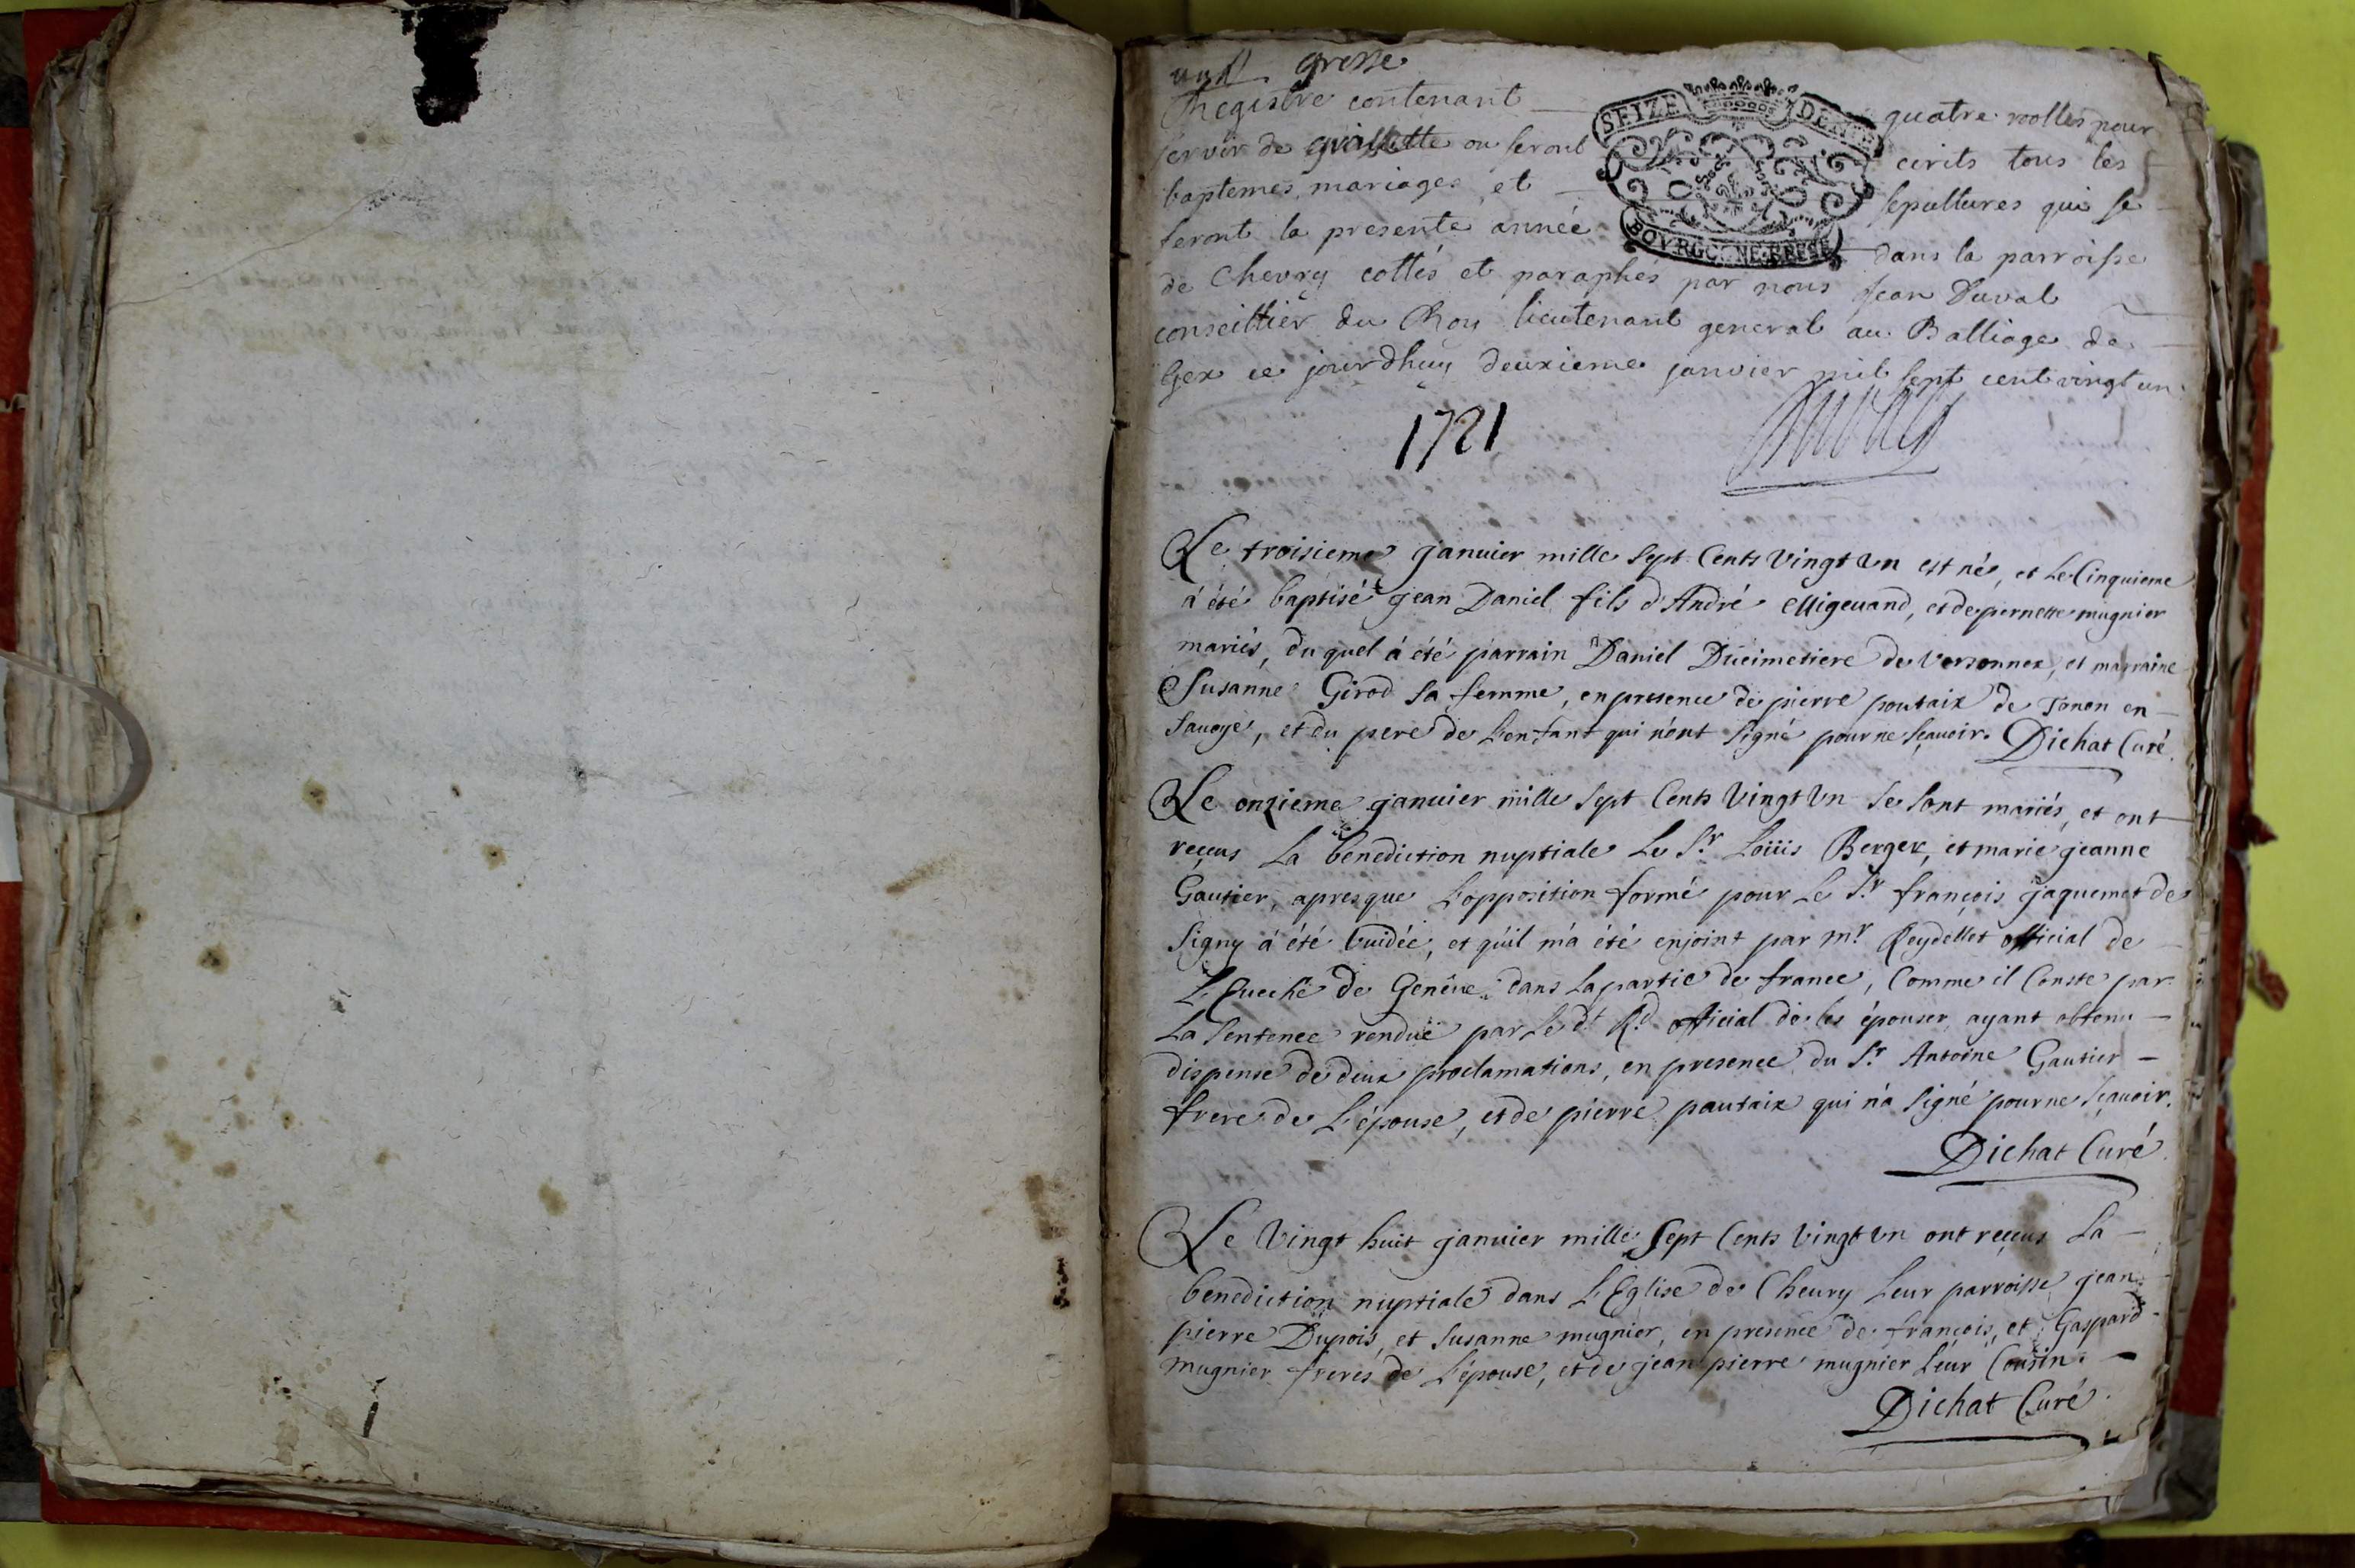 grosse
Registre contenant quatre roolles pour
servir de ou seront ecrits tous les
baptemes, mariages et sepultures qui se
feront la presente année dans la parroisse
de Chevry cottés et paraphés par nous Jean Duval
conseillier du Roy lieutenant general au Balliage de
Gex ce jourdhuy deuxieme janvier mil sept cent vingt un
SEIZE DEN
BOVRGOGNE BRESSE
1721
Duval
Le troisieme januier mille sept Cents Vingt Vn est né, et Le Cinquieme
á été baptisé jean Daniel fils d'André Migeuand, et de pernette mugnier
mariés, du quel á été parrain Daniel Ducimetiere de Versonnex, et marraine
Susanne Girod sa femme, en presence de pierre poutaix de Tonon en
Sauoye, et du pere de L'enfant qui n'ont signé pour ne sçauoir. Dichat Curé.
Le onzieme januier mille sept Cents Vingt Vn se sont mariés, et ont
reçeus La benediction nuptiale Le Sr. Loüis Berger, et marie jeanne
Gautier, apres que L'opposition formé pour Le Sr. françois jaquemet de
Signy á été Vuidée, et qu'il m'a été enjoint par mr. Reydellet official de
L'Eueché de Genêue dans La partie de france, Comme il Conste par
La Sentence renduë par Le dt. Rd. official de les épouser, ayant obtenu
dispense de deux proclamations, en presence du Sr. Antoine Gautier
frere de L'épouse, et de pierre poutaix qui n'a signé pour ne sçauoir.
Dichat Curé.
Le Vingt huit januier mille Sept Cents Vingt Vn ont reçeus La
benediction nuptiale dans L'Eglise de Cheury Leur parroisse jean
pierre Dupois, et Susanne mugnier, en presence de françois, et Gaspard
mugnier freres de L'épouse, et de jean pierre mugnier Leur Cousin.
Dichat Curé.